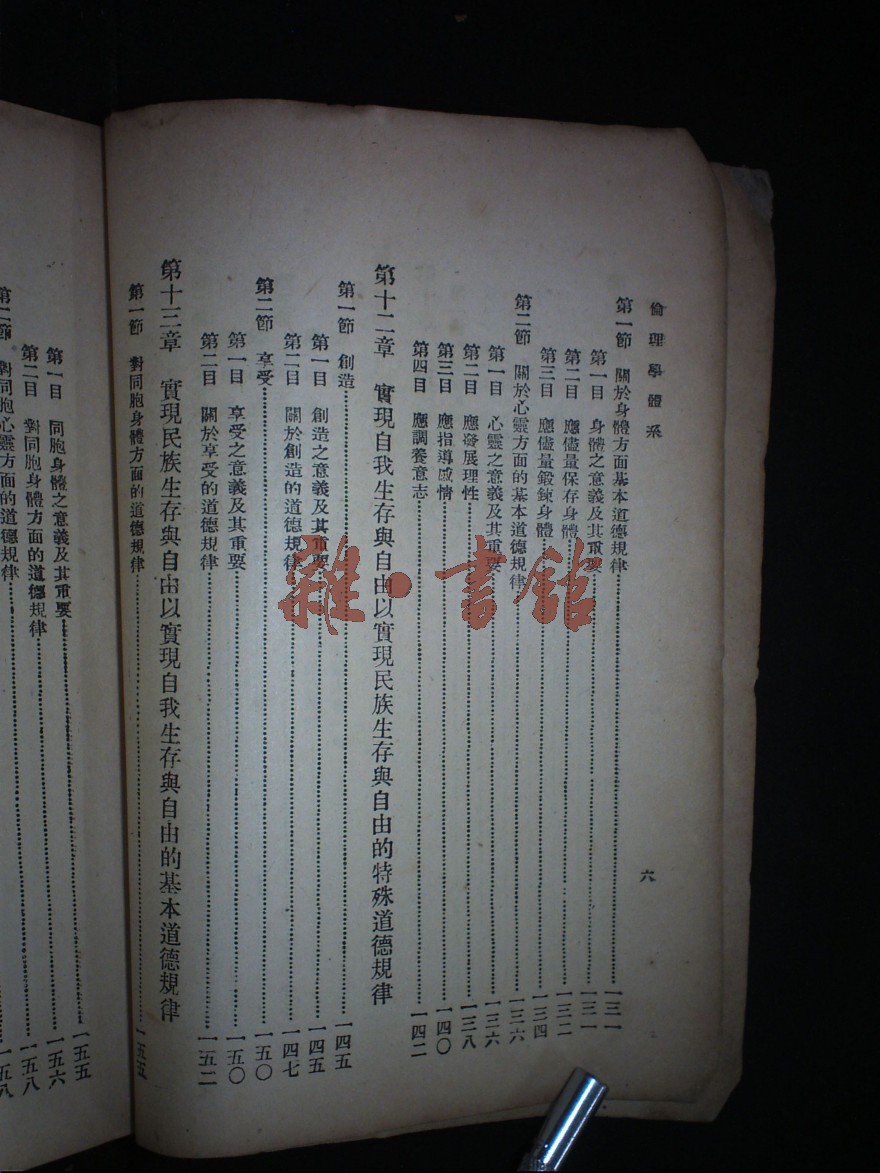 倫理學體系
六
第一節 關於身體方面基本道德規律 一三一
第一目 身體之意義及其重要 一三一
第二目 應儘量保存身體 一三二
第三目 應儘量鍛鍊身體 一三四
第二節 關於心靈方面的基本道德規律 一三六
第一目 心靈之意義及其重要 一三六
第二目 應發展理性 一三八
第三目 應指導感情 一四〇
第四目 應調養意志 一四二
第十二章 實現自我生存與自由以實現民族生存與自由的特殊道德規律
第一節 創造 一四五
第一目 創造之意義及其重要 一四五
第二目 關於創造的道德規律 一四七
第二節 享受 一五〇
第一目 享受之意義及其重要 一五〇
第二目 關於享受的道德規律 一五二
第十三章 實現民族生存與自由以實現自我生存與自由的基本道德規律
第一節 對同胞身體方面的道德規律 一五五
第一目 同胞身體之意義及其重要 一五五
第二目 對同胞身體方面的道德規律 一五六
第二節 對同胞心靈方面的道德規律 一五八
一五八
雜·書館